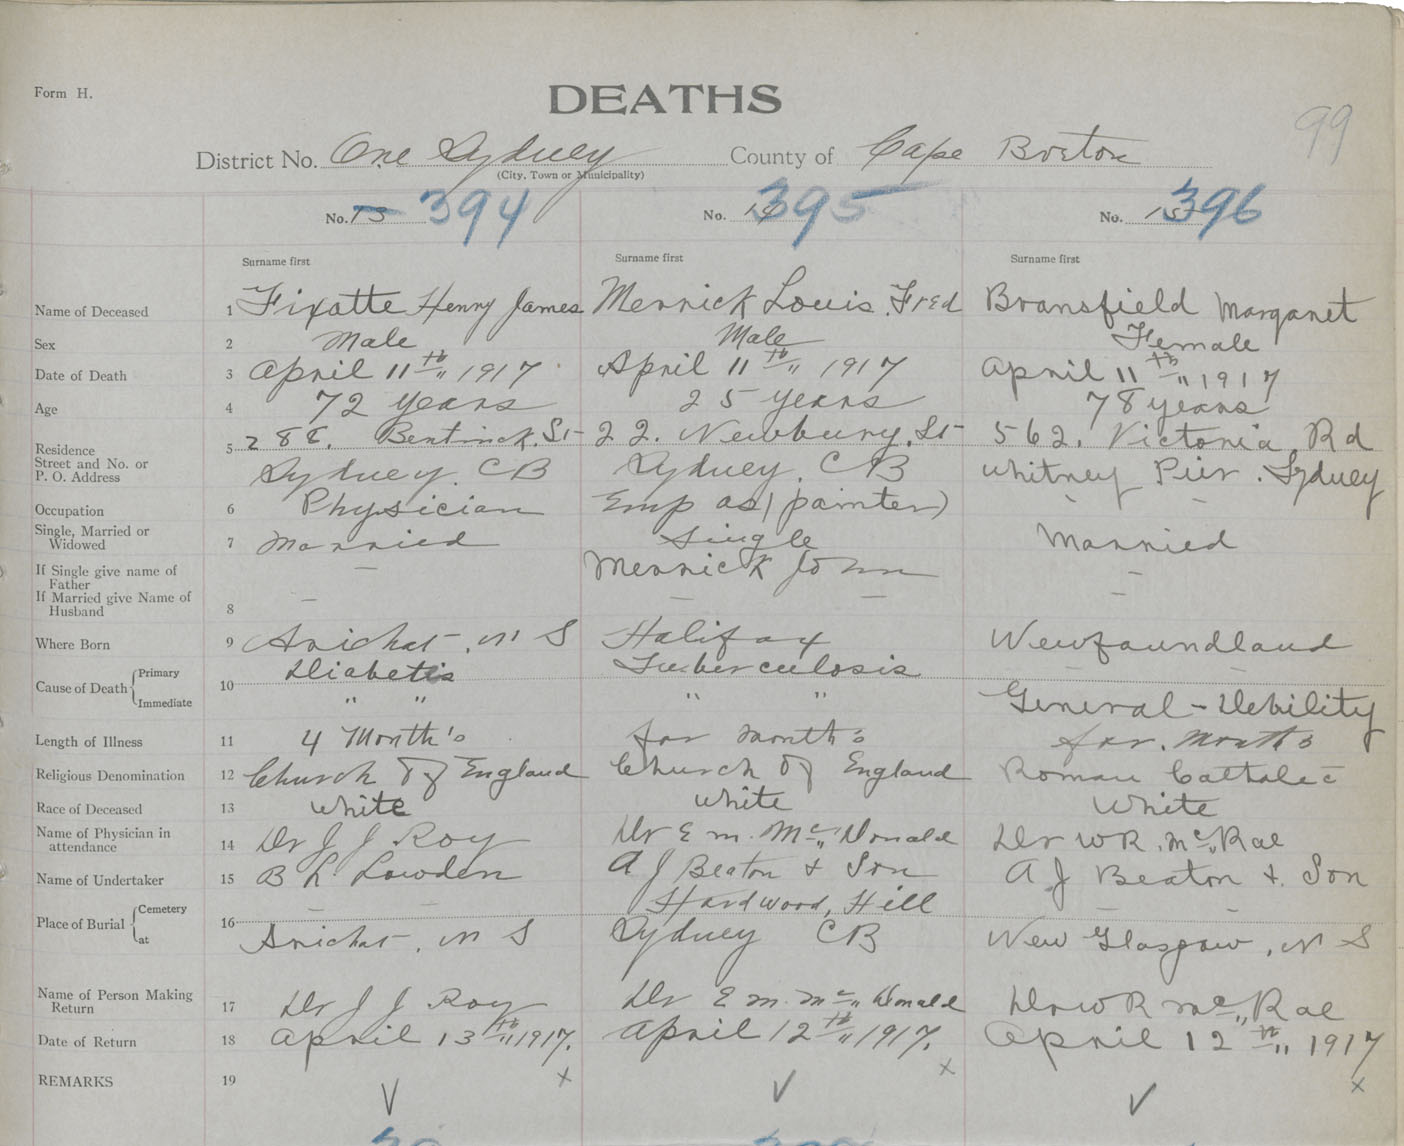 Form H.
DEATHS
99
District No. One Sydney County of Cape Breton
(City, Town or Municipality)
No. 13 394 No. 14 395 No. 15 396
Surname first Surname first Surname first
Name of Deceased 1 Fixatte Henry James Merrick Louis Fred Bransfield Margaret
Sex 2 Male Male Female
Date of Death 3 April 11th 1917 April 11th 1917 April 11th 1917
Age 4 72 years 25 years 78 years
Residence Street and No. or P. O. Address 5 288. Bentinck. St 22. Newbury. St 562. Victoria Rd
Sydney. CB Sydney. CB Whitney Pier. Sydney
Occupation 6 Physician Emp as (painter) - -
Single, Married or Widowed 7 Married Single Married
If Single give name of Father - Merrick John -
If Married give Name of Husband 8 - - - -
Where Born 9 Arichat, N S Halifax Newfoundland
Cause of Death { Primary 10 Diabetis Tuberculosis - -
Immediate " " " " General - Debility
Length of Illness 11 4 Month's for months for. months
Religious Denomination 12 Church Of England Church Of England Roman Catholec
Race of Deceased 13 White White White
Name of Physician in attendance 14 Dr J J Roy Dr E M. Mc Donald Dr W R. Mc Rae
Name of Undertaker 15 B L Lowden A J Beaton & Son A J Beaton & Son
Place of Burial { Cemetery 16 - - Hardwood, Hill - -
at Arichat, N S Sydney CB New Glasgow, N S
Name of Person Making Return 17 Dr J J Roy Dr E M. Mc Donald Dr W R Mc Rae
Date of Return 18 April 13th 1917. April 12th 1917. April 12th 1917
REMARKS 19 x x x